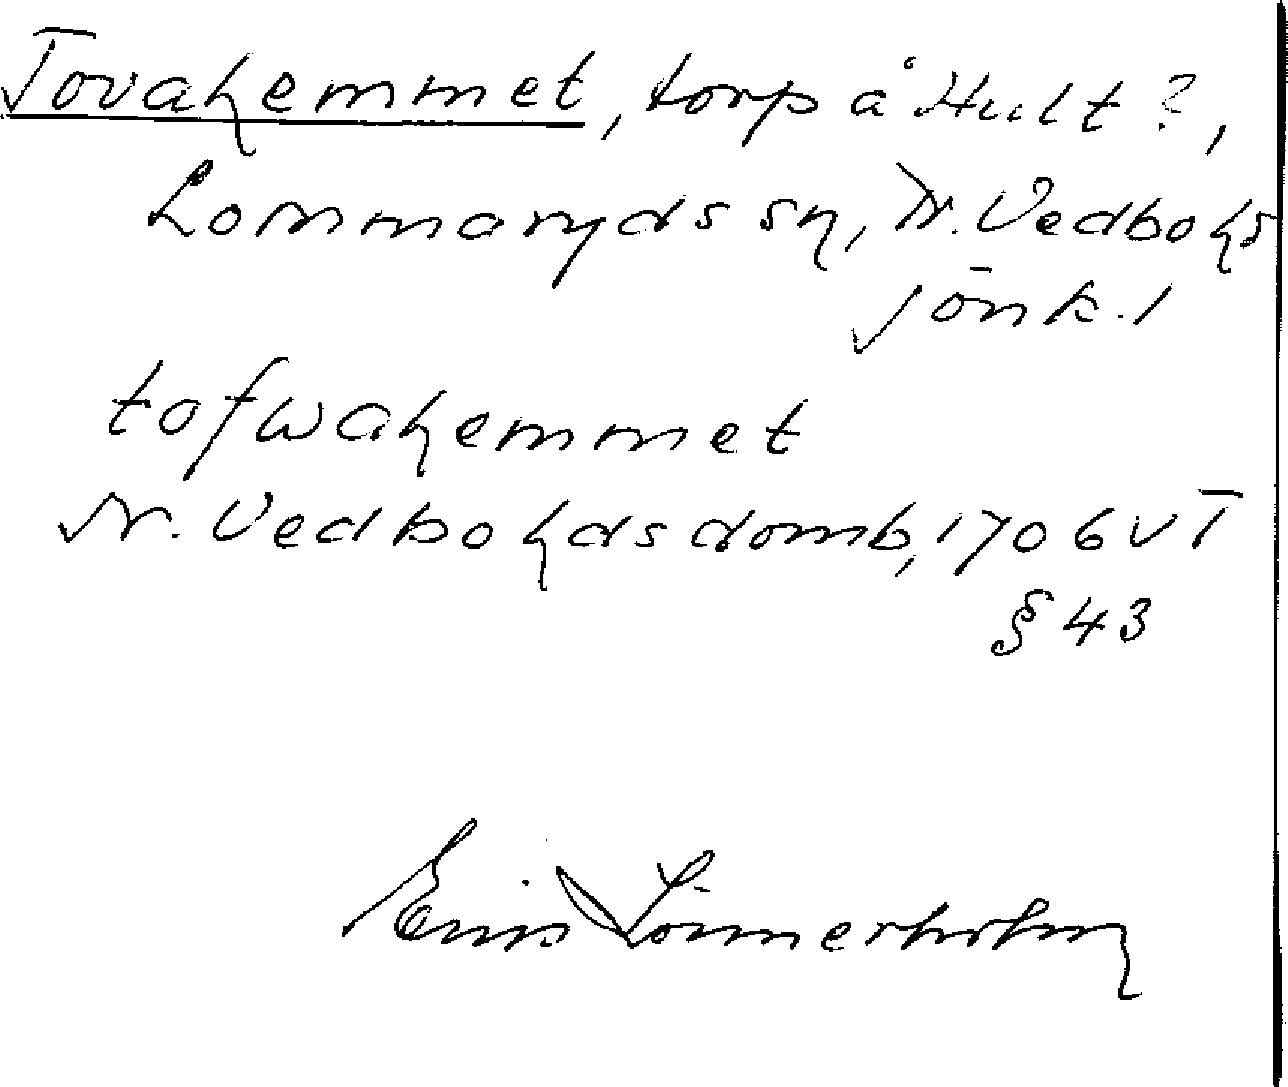 Tovahemmet, torp å Hult?,
Lommaryds sn, N. Vedbo hs
Jönk. l
tofwahemmet
N. Vedbo hds domb, 1706 vT
§ 43
Lönnerholm